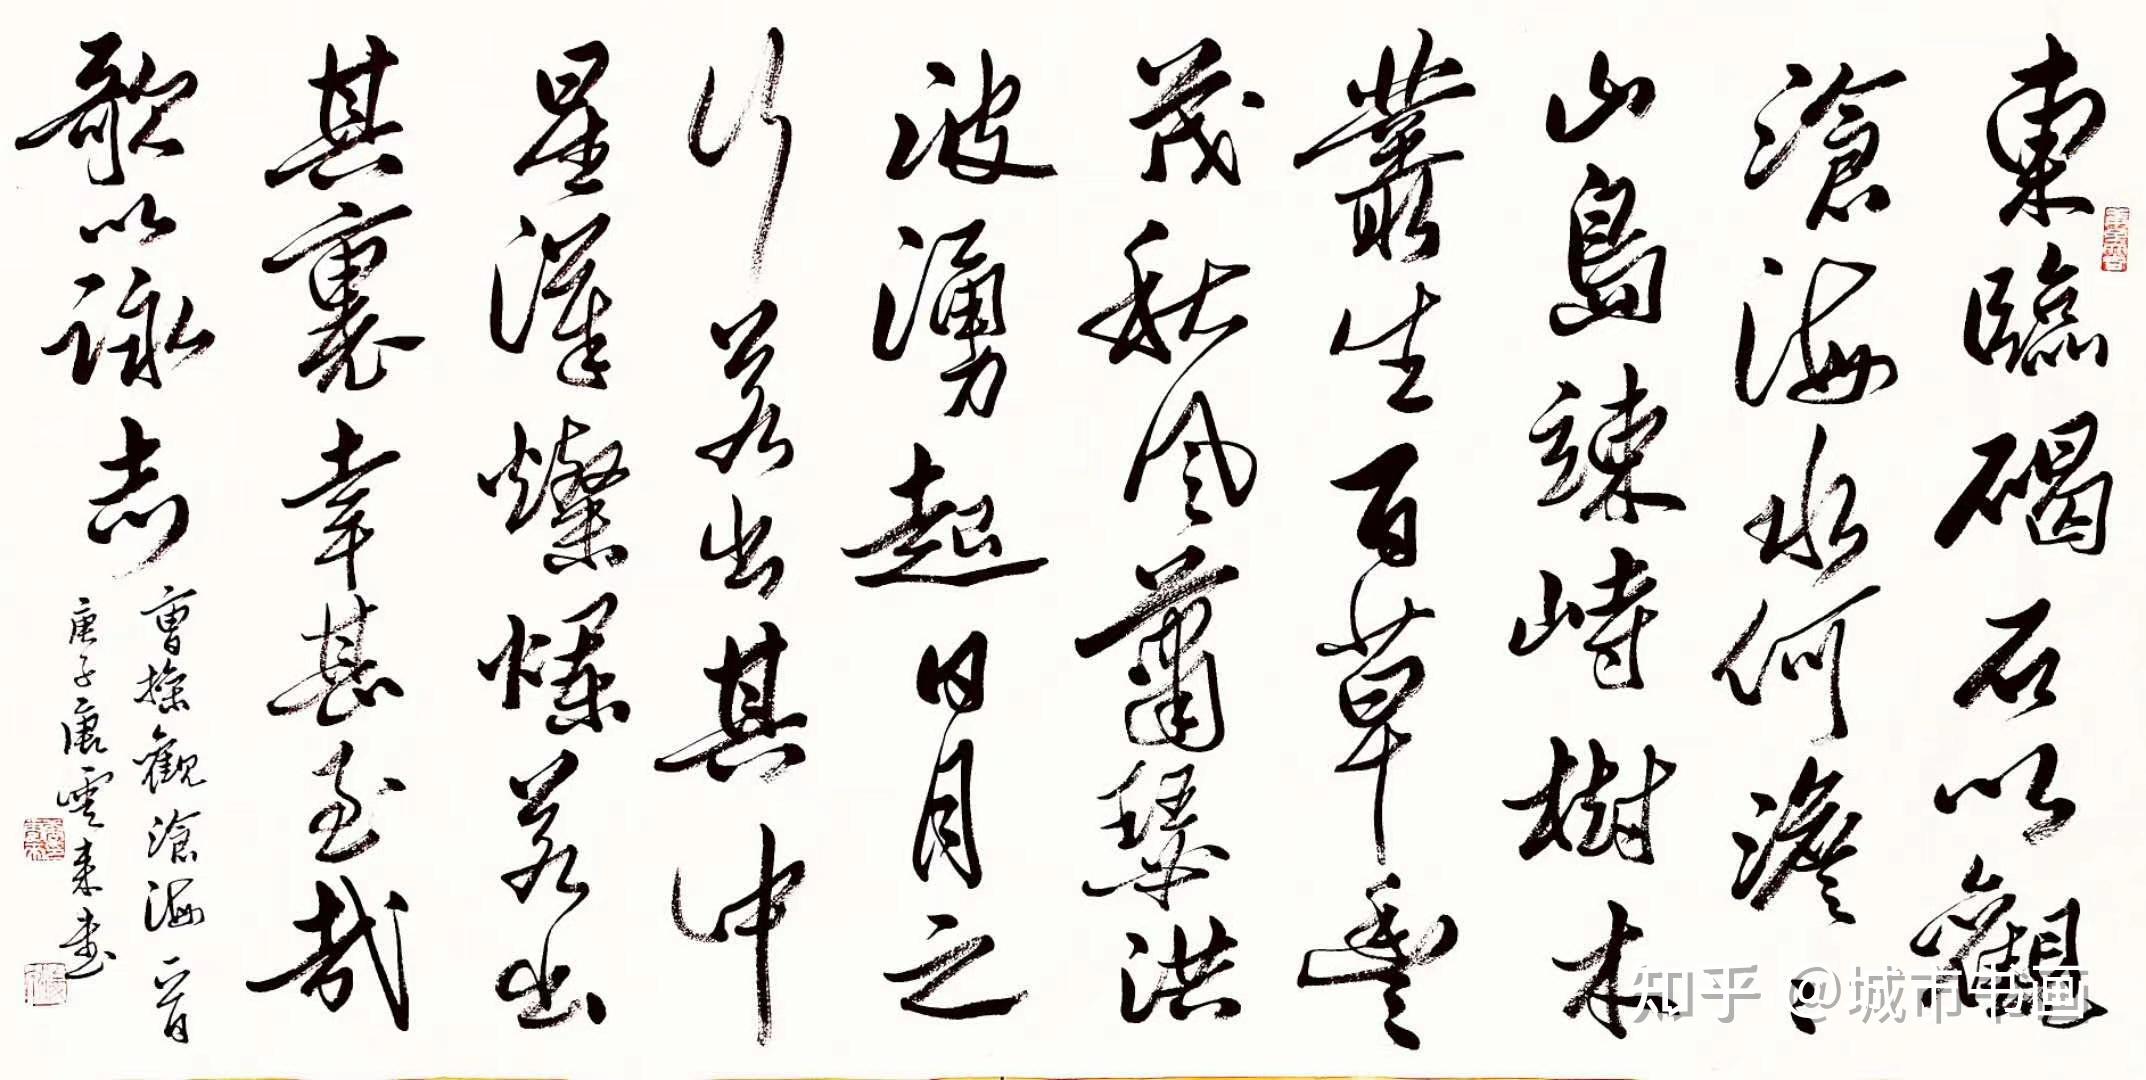 東臨碣石以觀
滄海水何澹〻
山島竦峙樹木
叢生百草豐
茂秋風蕭瑟洪
波湧起日月之
行若出其中
星漢燦爛若出
其裏幸甚至哉
歌以詠志
曹操觀滄海一首
庚子唐雲来書
知乎 @城市书画